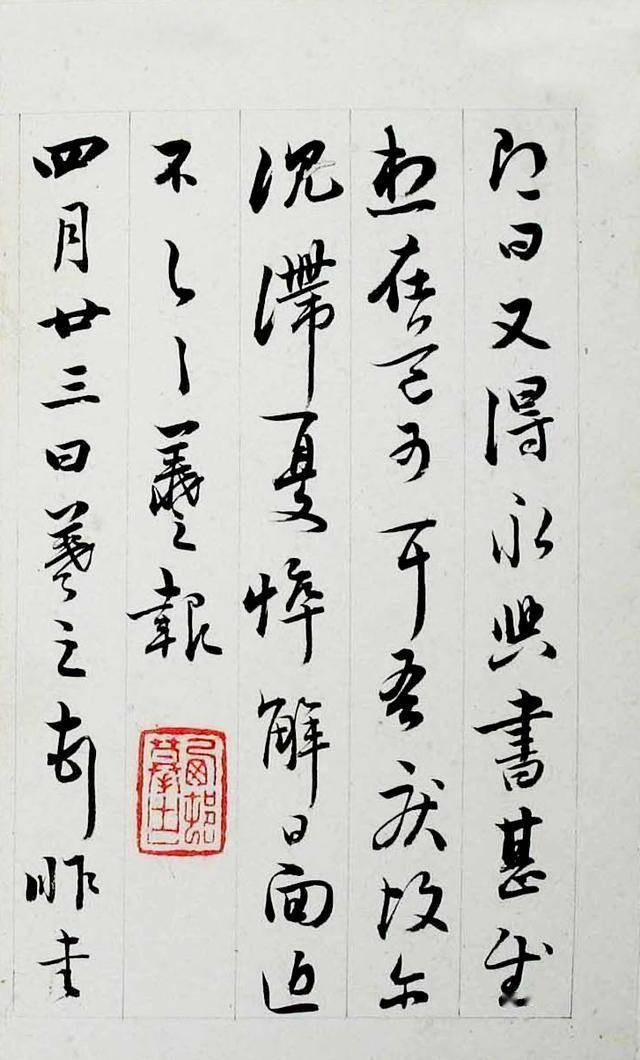 即日又得永興書甚慰
想在可耳吾疾故尔
沉滯憂悴解日面近
不一一羲之報
四月廿三日羲之頓首昨書